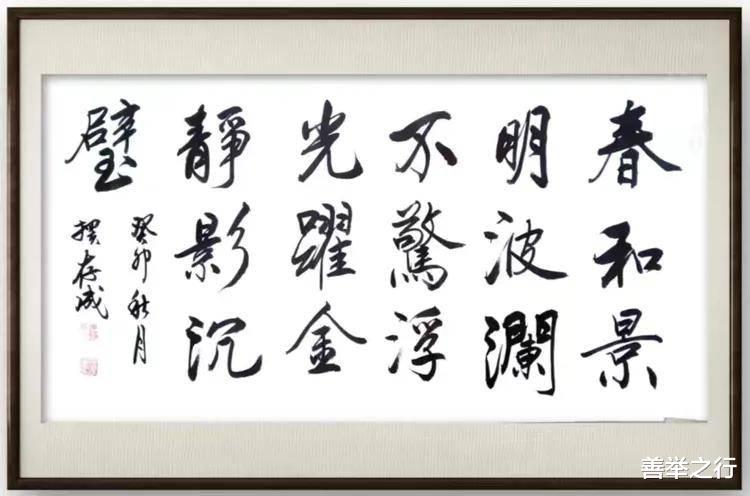 春和景
明波瀾
不驚浮
光躍金
靜影沉
璧
癸卯秋月
存成
善举之行